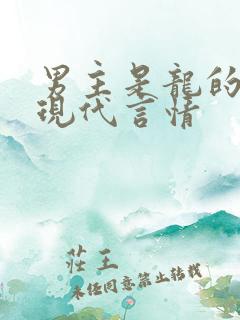 男主是龍的
現代言情
莊王
未經同意禁止轉載